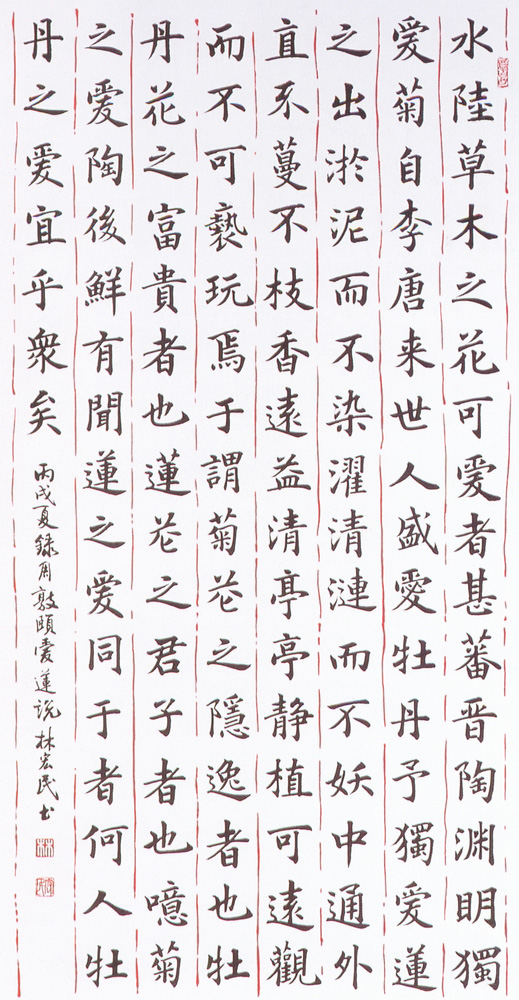 水陸草木之花可爱者甚蕃晋陶渊明獨
爱菊自李唐来世人盛愛牡丹予獨爱蓮
之出淤泥而不染濯清漣而不妖中通外
直不蔓不枝香遠益清亭亭静植可遠觀
而不可褻玩焉于謂菊花之隱逸者也牡
丹花之富貴者也蓮花之君子者也噫菊
之爱陶後鮮有聞蓮之爱同于者何人牡
丹之爱宜乎衆矣
丙戌夏録周敦頤愛蓮说林宏民书